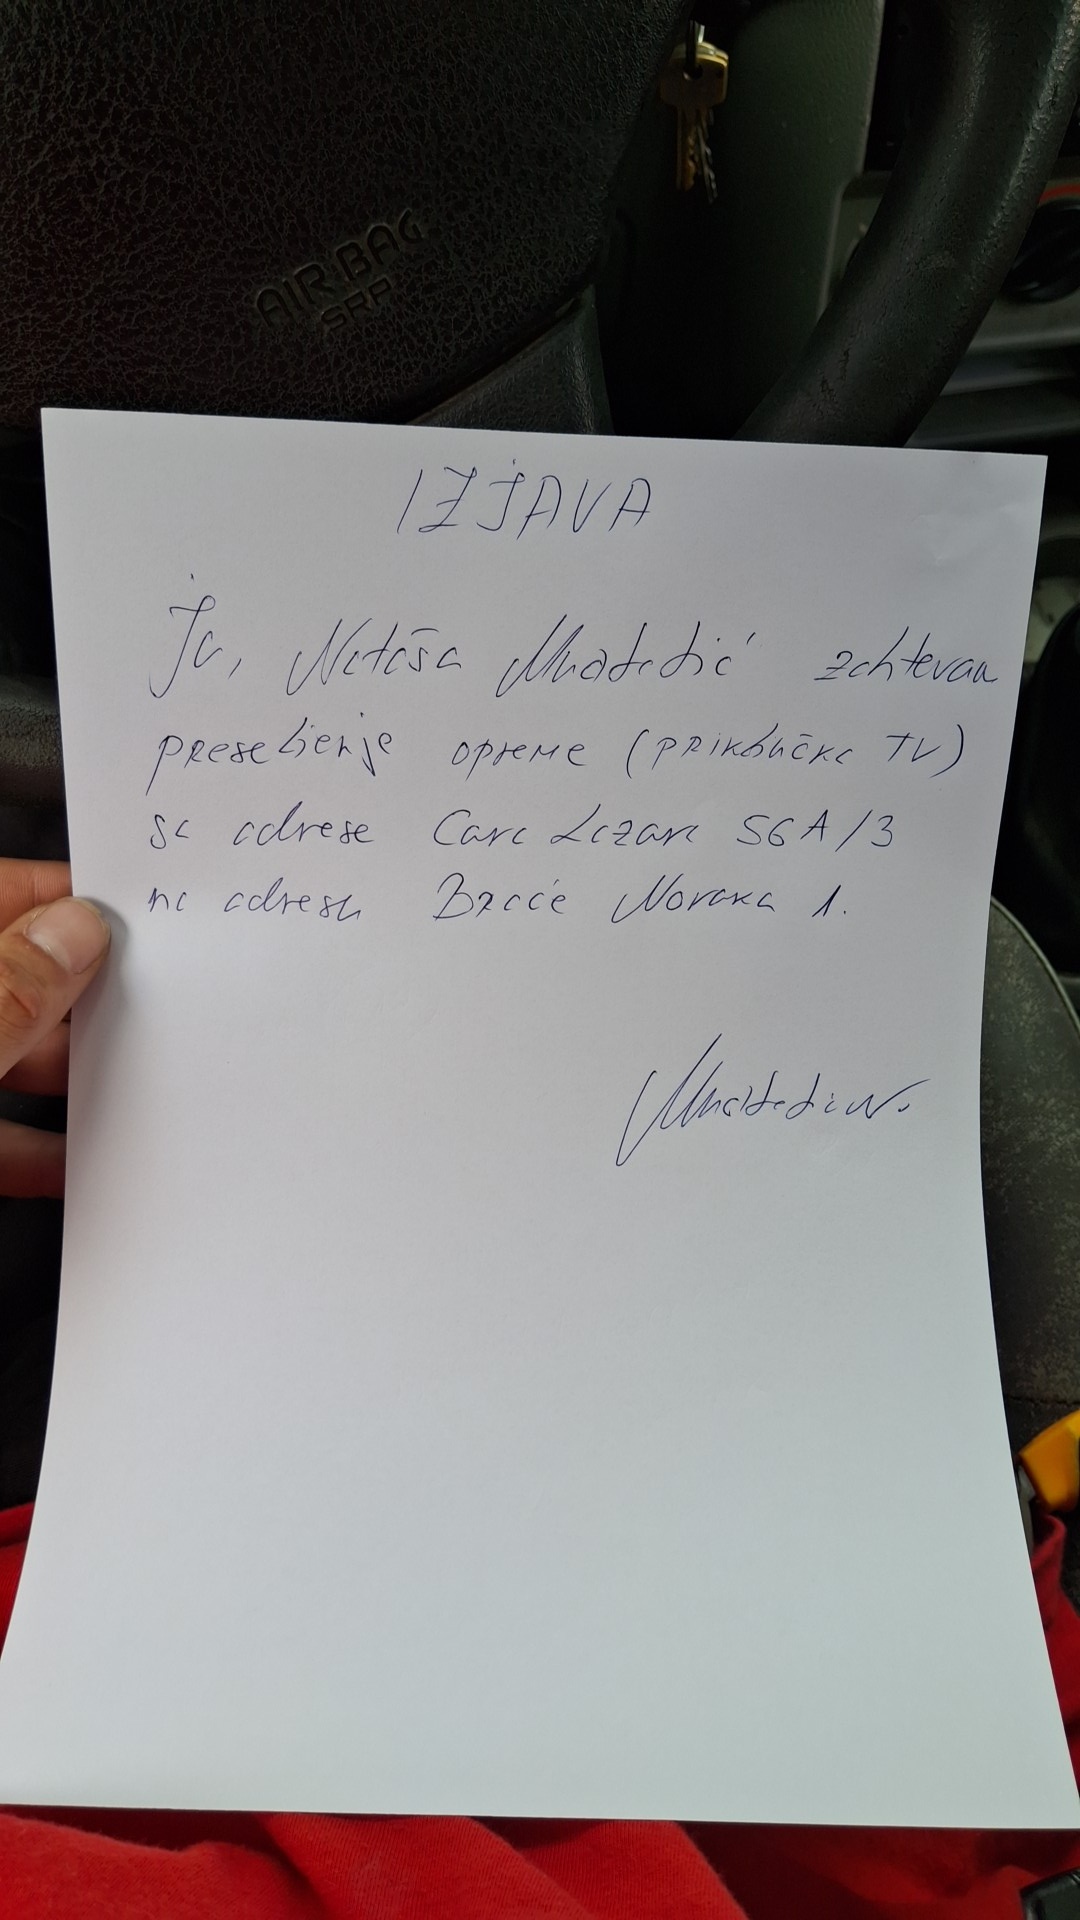 AIRBAG
SRP
IZJAVA
Ja, Nataša zahtevam
preseljenje opreme (priključka TV)
sa adrese Cara Lazara 56A/3
na adresu Braće Novaka 1.